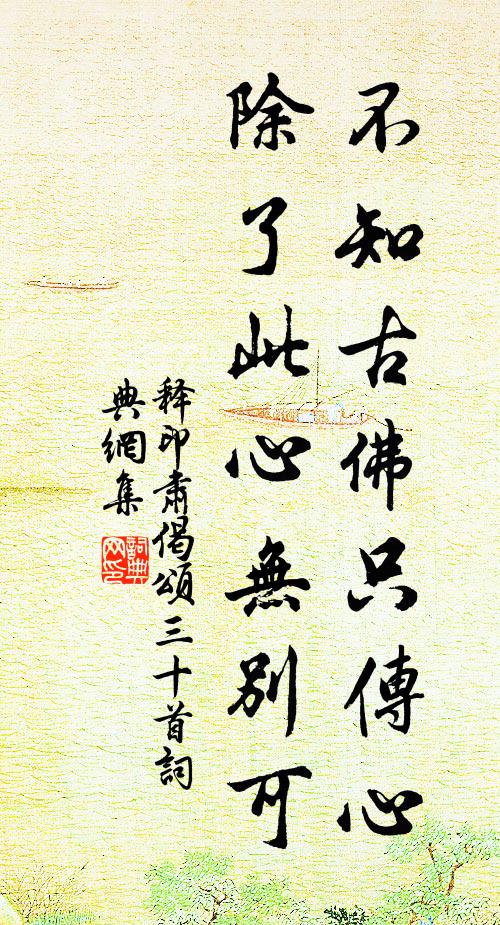 不知古佛只傳心
除了此心無別可
釋印肅偈頌三十首詞
典網集
詞典
网印